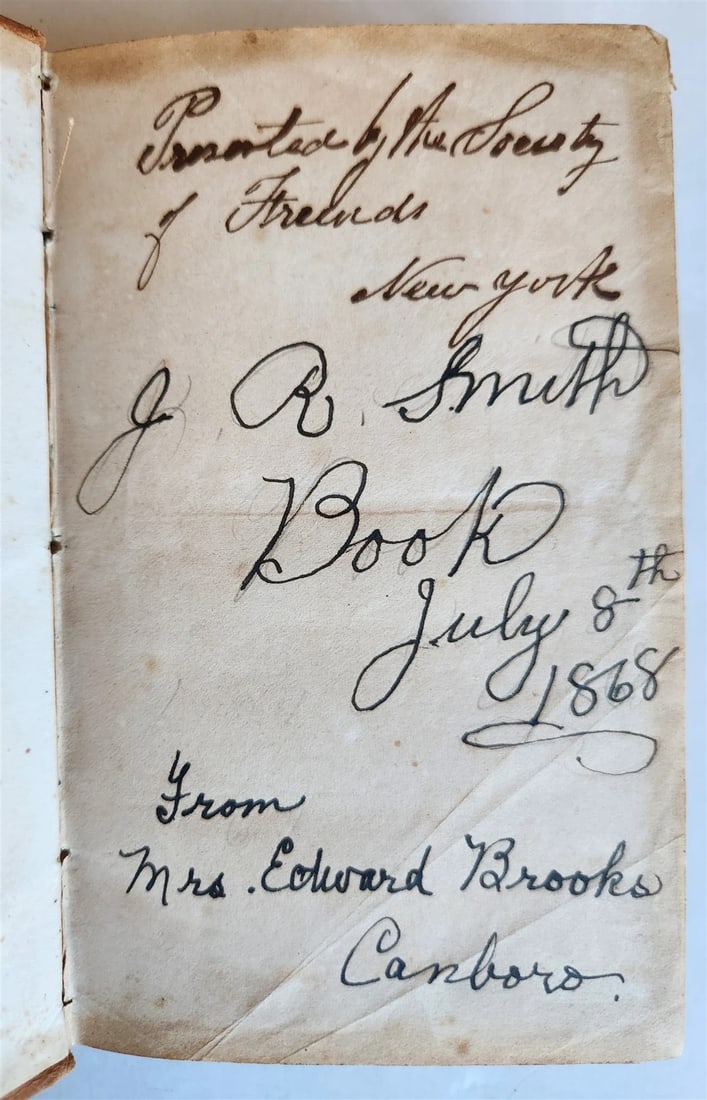 Presented by the Society
of Friends
New York
J. R. Smith
Book
July 8th
1868
From
Mrs. Edward Brooks
Canboro.